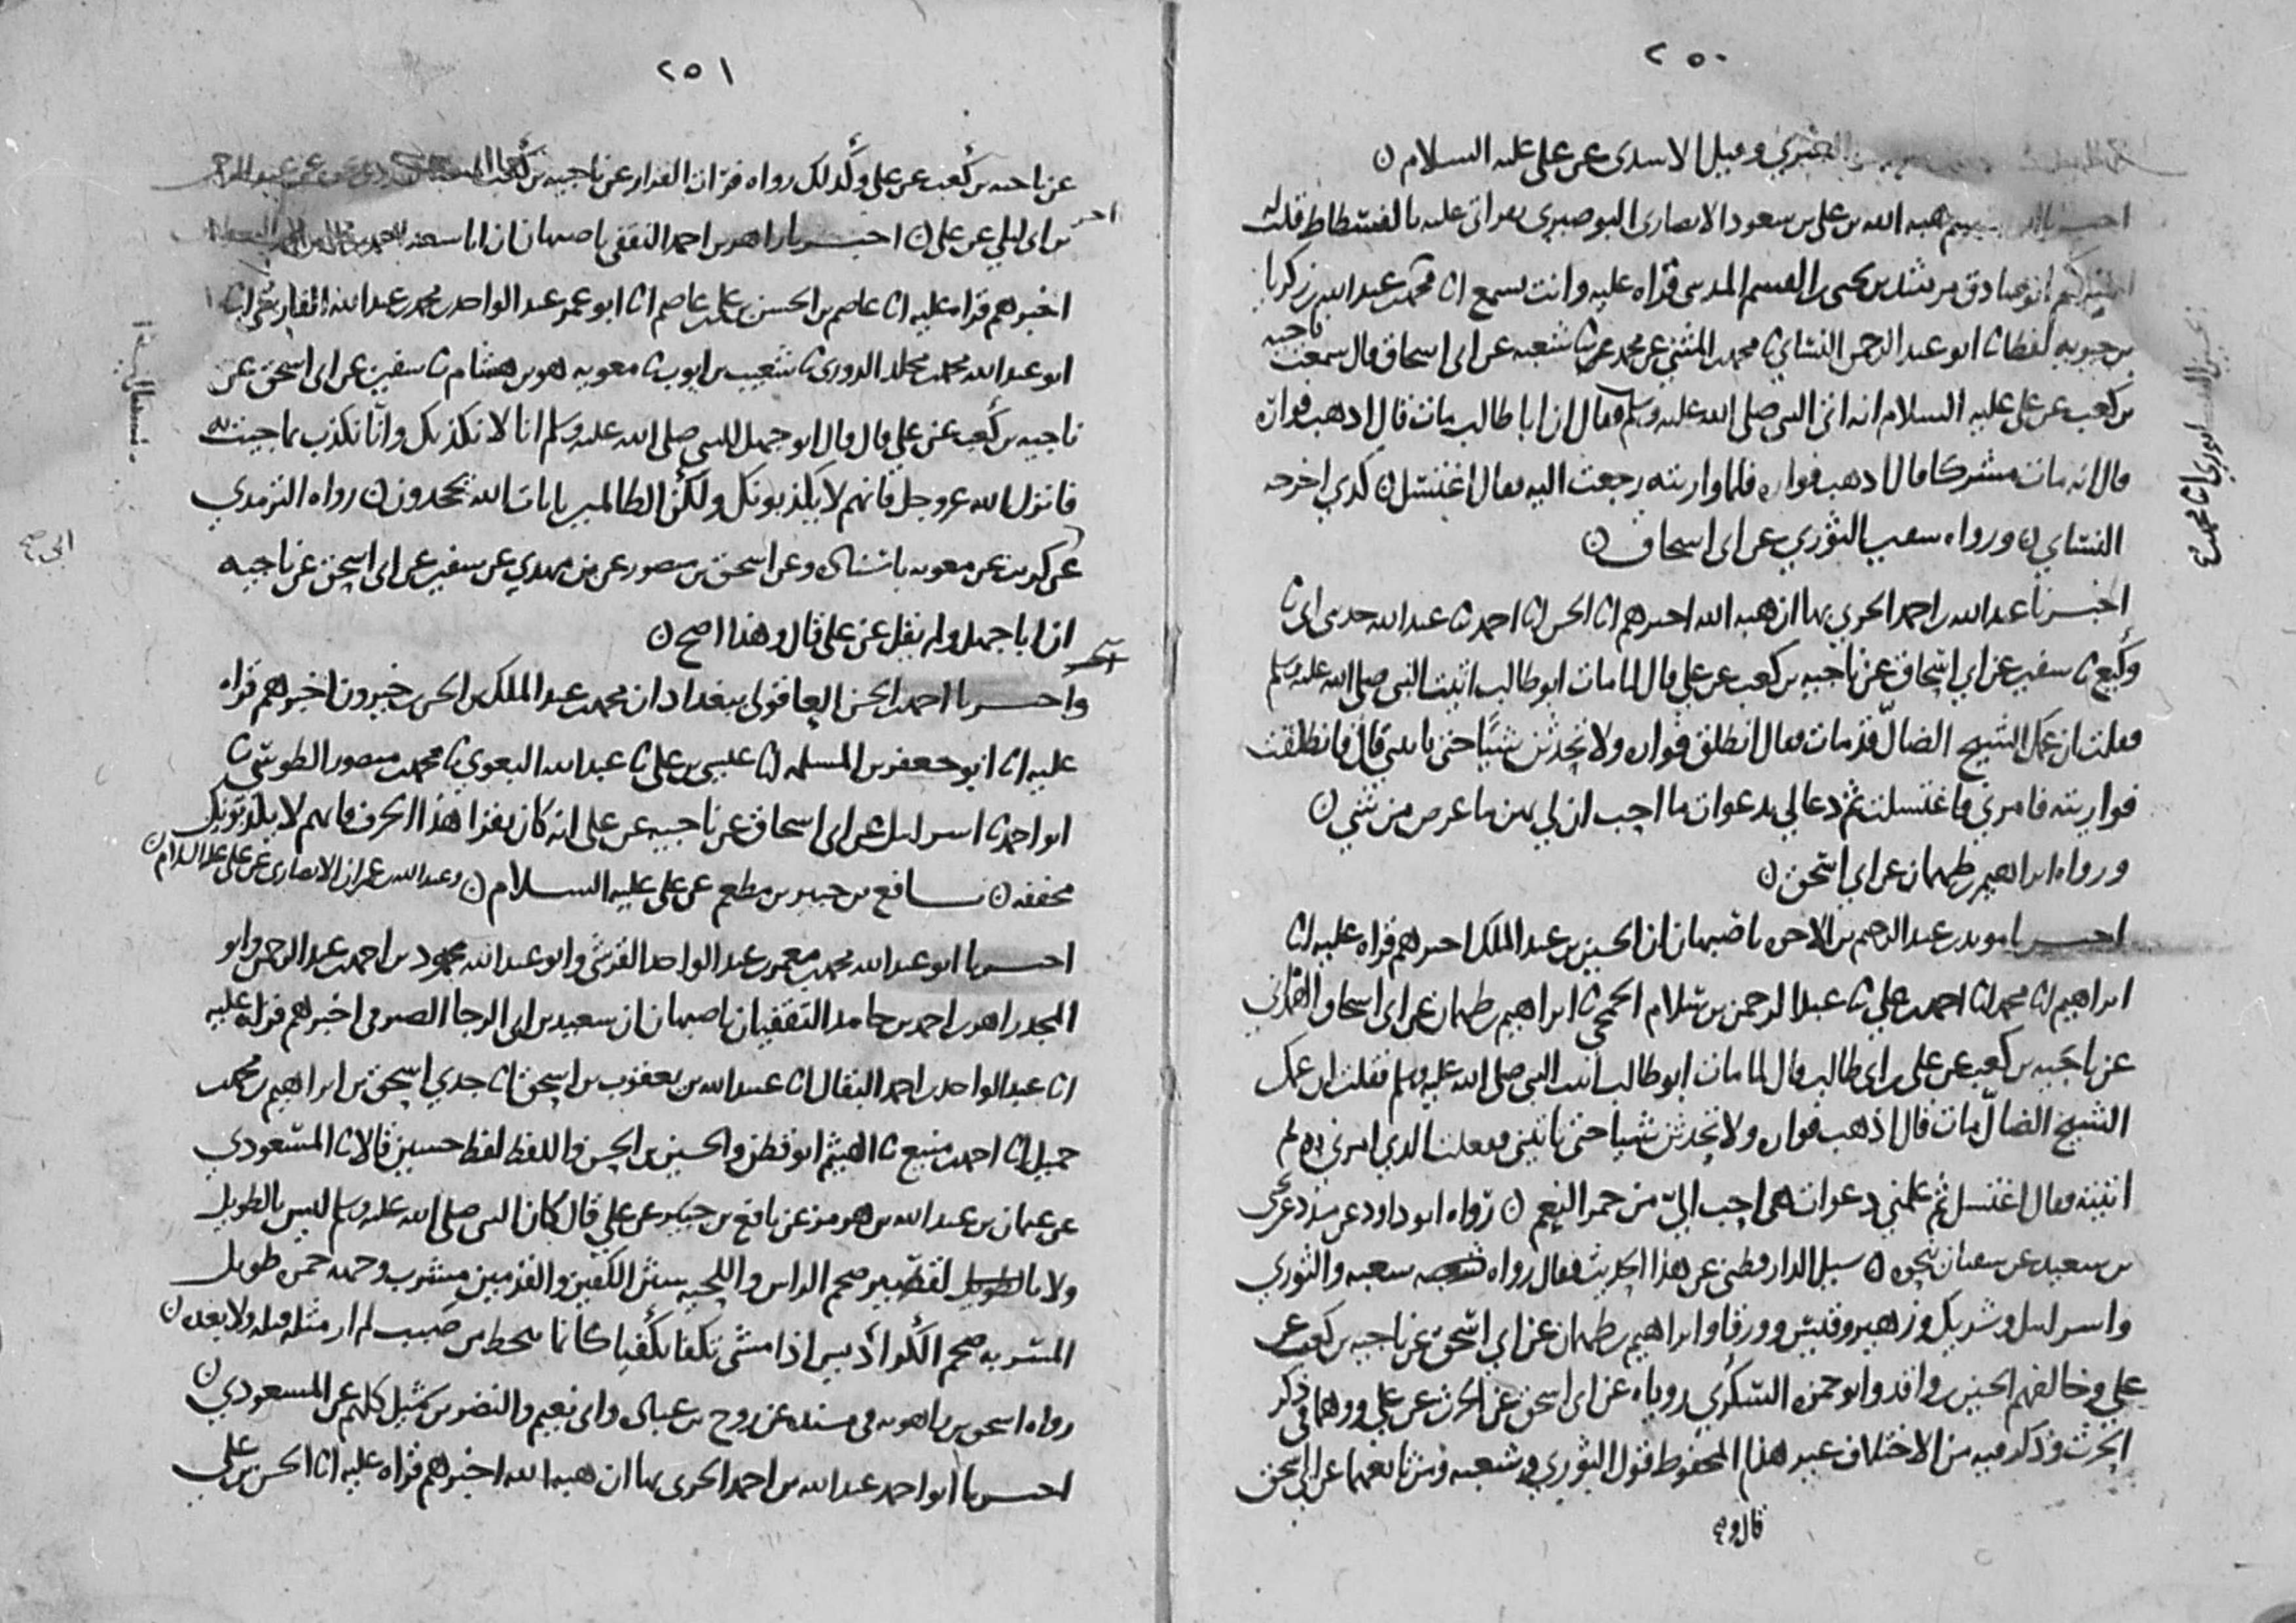 ٢٥٠
العنبري وقيل الاسدى عن على عليه السلام ن
هبه الله بن على بن سعود الانصارى البوصيرى بقراتى عليه بالفسطاط قلت له
اخبركم ابو صادق مرشد بن يحيى بن القسم المدينى قراه عليه وانت تسمع انا محمد بن عبد الله بن زكريا
بن حيويه لفظا ثنا ابو عبد الرحمن النسائى ثنا محمد بن المثنى عن محمد ثنا شعبه عن ابى اسحاق قال سمعت ناجيه
بن كعب عن على عليه السلام انه اتى النبى صلى الله عليه وسلم فقال ان ابا طالب مات فقال اذهب فواره
قال انه مات مشركا فقال اذهب فواره فلما واريته رجعت اليه فقال اغتسل ن كذى اخرجه
النسائى ن ورواه سفين الثورى عن ابى اسحاق ن
اخبرنا عبد الله بن احمد الحربى بها ان هبه الله اخبرهم انا الحسن انا احمد ثنا عبد الله حدثنى ابى ثنا
وكيع ثنا سفين عن ابى اسحاق عن ناجيه بن كعب عن على قال لما مات ابو طالب اتيت النبى صلى الله عليه وسلم
فقلت ان عمك الشيخ الضال قد مات فقال انطلق فواره ولا تحدثن شيئا حتى تاتينى قال فانطلقت
فواريته فامرنى فاغتسلت ثم دعا لى بدعوات ما احب ان لى بهن ما عرض من شى ن
ورواه ابراهيم بن طهمان عن ابى اسحق ن
اخبرنا مويد بن عبد الرحيم بن الاخوه باصبهان ان الحسين بن عبد الملك اخبرهم قراه عليه انا
ابراهيم انا محمد انا احمد بن على ثنا عبد الرحمن بن سلام الجمحى ثنا ابراهيم بن طهمان عن ابى اسحاق الهمدانى
عن ناجيه بن كعب عن على بن ابى طالب قال لما مات ابو طالب اتيت النبى صلى الله عليه وسلم فقلت ان عمك
الشيخ الضال مات قال اذهب فواره ولا تحدثن شيئا حتى تاتينى ففعلت الذى امرنى به ثم
اتيته فقال اغتسل ثم علمنى دعوات هى احب الى من حمر النعم ن رواه ابو داود عن مسدد عن يحيى
بن سعيد عن سفيان نحوه ن سيل الدارقطنى عن هذا الحديث فقال رواه شعبه والثورى
واسرايل وشريك وزهير وقيس وورقا وابراهيم بن طهمان عن ابى اسحق عن ناجيه بن كعب عن
على وخالفهم الحسين بن واقد وابو حمزه السكرى روياه عن ابى اسحق عن الحرث عن على ووهما فى ذكر
الحرث وذكر فيه من الاختلاف غير هذا المحفوظ قول الثورى وشعبه ومن تابعهما عن ابى اسحق
قال و
٢٥١
عن ناجيه بن كعب عن على وكذلك رواه فرات القزاز عن ناجيه بن كعب
بن ابى ليلى عن على ن اخبرنا زاهر بن احمد الثقفى باصبهان ان ابا سعد
اخبرهم قراه عليه انا عاصم بن الحسن بن محمد بن عاصم انا ابو عمر عبد الواحد بن محمد بن عبد الله الفارسى انا
ابو عبد الله محمد بن مخلد الدورى ثنا شعيب بن ايوب ثنا معويه هو بن هشام ثنا سفين عن ابى اسحق عن
ناجيه بن كعب عن على قال قال ابو جهل للنبى صلى الله عليه وسلم انا لا نكذبك وانا نكذب بما جيت به
فانزل الله عز وجل فانهم لا يكذبونك ولكن الظالمين بايات الله يجحدون ن رواه الترمذى
عن ابى كريب عن معويه باسناده وعن اسحق بن منصور عن بن مهدى عن سفين عن ابى اسحق عن ناجيه
ان ابا جهل ولم يقل عن على قال وهذا اصح ن
واخبرنا احمد بن الحسن العاقولى ببغداد ان محمد بن عبد الملك بن الحسن بن خيرون اخبرهم قراه
عليه انا ابو جعفر بن المسلمه انا عيسى بن على ثنا عبد الله البغوى ثنا محمد بن منصور الطوسى ثنا
ابو احمد ثنا اسرايل عن ابى اسحاق عن ناجيه عن على انه كان يقرا هذا الحرف فانهم لا يكذبونك
مخففه ن نافع بن جبير بن مطعم عن على عليه السلام ن وعبد الله بن عمران الانصارى عن على عليه السلام ن
اخبرنا ابو عبد الله محمد بن معمر بن عبد الواحد القرشى وابو عبد الله محمود بن احمد بن عبد الرحمن وابو
المجد زاهر بن احمد بن حامد الثقفيان باصبهان ان سعيد بن ابى الرجا الصيرفى اخبرهم قراه عليه
انا عبد الواحد بن احمد البقال انا عبيد الله بن يعقوب بن اسحق انا جدى اسحق بن ابراهيم بن محمد بن
جميل انا احمد بن منيع ثنا الهيثم ابو قطن والحسين بن الحسن واللفظ لفظ حسين قالا ثنا المسعودى
عن عثمان بن عبد الله بن هرمز عن نافع بن جبير عن على قال كان النبى صلى الله عليه وسلم ليس بالطويل
ولا بالقصير ضخم الراس واللحيه شثن الكفين والقدمين مشرب وجهه حمره طويل
المسربه ضخم الكراديس اذا مشى تكفا تكفيا كانما ينحط من صبب لم ار مثله قبله ولا بعده ن
رواه اسحق بن راهويه فى مسنده عن روح بن عباده وابى نعيم والنضر بن شميل كلهم عن المسعودى ن
اخبرنا ابو احمد عبد الله بن احمد الحربى بها ان هبه الله اخبرهم قراه عليه انا الحسن بن على